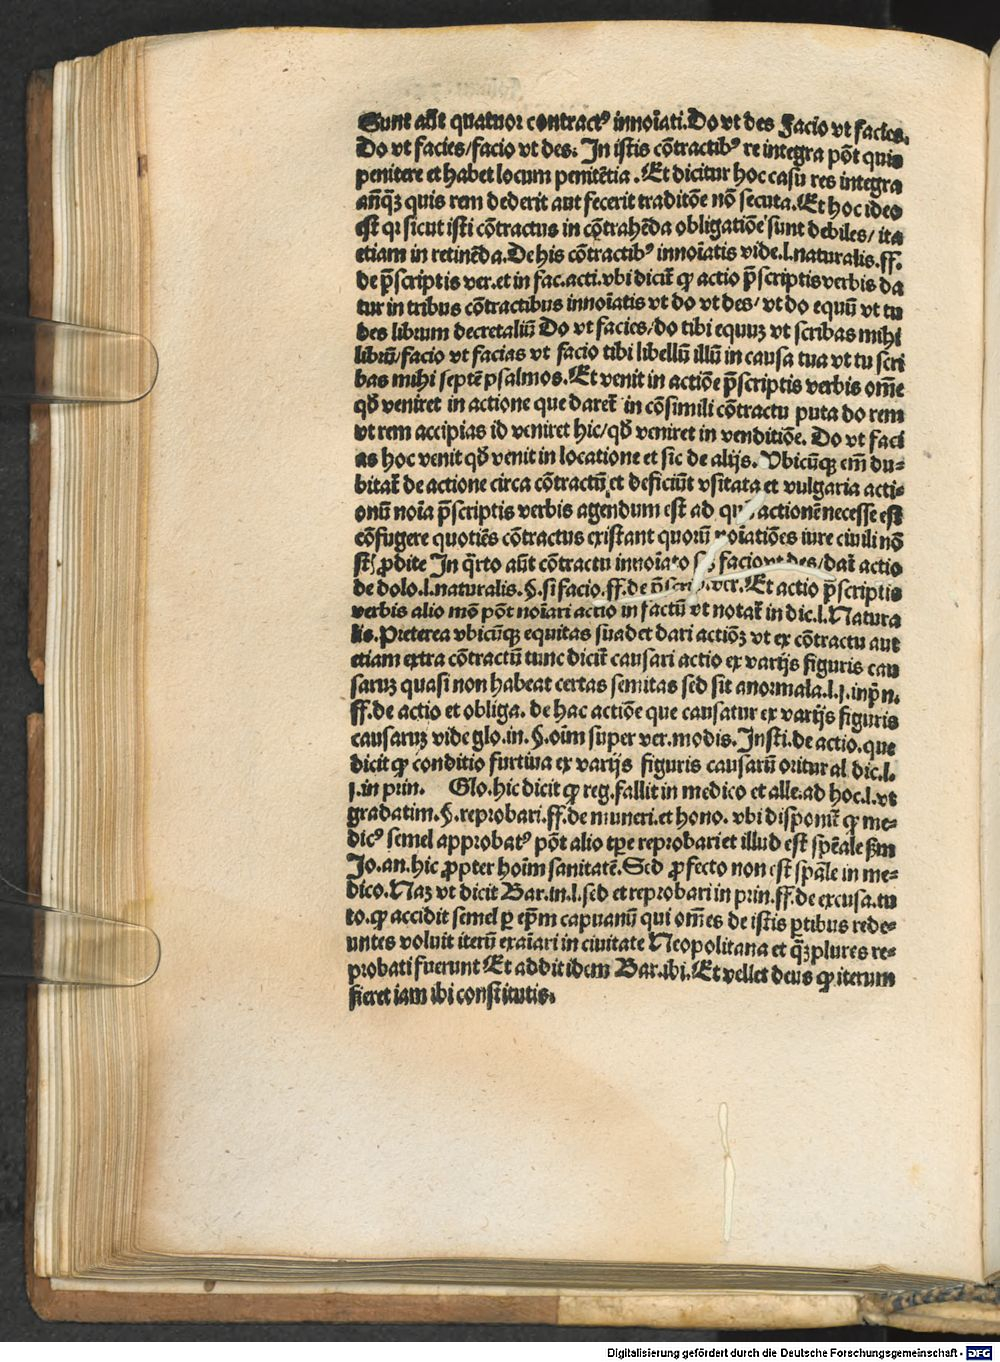 Sunt aūt quatuor contractꝰ innoīati. Do vt des Facio vt facies.
Do vt facies/facio vt des. In istis cōtractibꝰ re integra pōt quis
penitere et habet locum penitētia. Et dicitur hoc casu res integra
anq̄ꝫ quis rem dederit aut fecerit traditōe nō secuta. Et hoc ideo
est qꝛ sicut isti cōtractus in cōtrahēda obligatiōe sunt debiles/ ita
etiam in retinēda. De his cōtractibꝰ innoīatis vide. l. naturalis. ff.
de p̄scriptis ver. et in fac. acti. vbi dicit̄ ꝙ actio p̄scriptis verbis da
tur in tribus cōtractibus innoīatis vt do vt des/ vt do equū vt tu
des librum decretaliū Do vt facies/do tibi equuꝫ vt scribas mihi
librū/facio vt facias vt facio tibi libellū illū in causa tua vt tu scri
bas mihi septē psalmos. Et venit in actiōe p̄scriptis verbis om̄e
qđ veniret in actione que daret̄ in cōsimili cōtractu puta do rem
vt rem accipias id veniret hic/qđ veniret in venditiōe. Do vt faci
as hoc venit qđ venit in locatione et sic de alijs. Vbicūqꝫ em̄ du⸗
bitat̄ de actione circa cōtractū et deficiūt vsitata et vulgaria acti⸗
onū noīa p̄scriptis verbis agendum est ad actionē necesse est
cōfugere quotiēs cōtractus existant quorū noīatiōes iure ciuili nō
ꝓdite In q̄rto aūt contractu innoīato facio vt des/dat̄ actio
de dolo. l. naturalis. §. si facio. ff. de p̄scrip. ver. Et actio p̄scriptis
verbis alio mō pōt noīari actio in factū vt notat̄ in dic. l. Natura
lis. Preterea vbicūqꝫ equitas suadet dari actiōꝫ vt ex cōtractu aut
etiam extra cōtractū tunc dicit̄ causari actio ex varijs figuris cau
saruꝫ quasi non habeat certas semitas sed sit anormala. l. j. in pn̄.
ff. de actio et obliga. de hac actiōe que causatur ex varijs figuris
causaruꝫ vide glo. in. §. oīm super ver. modis. Insti. de actio. que
dicit ꝙ conditio furtiua ex varijs figuris causarū oritur al dic. l.
j. in prin. Glo. hic dicit ꝙ reg. fallit in medico et alle. ad hoc. l. vt
gradatim. §. reprobari. ff. de muneri. et hono. vbi disponit̄ ꝙ me⸗
dicꝰ semel approbatꝰ pōt alio tpe reprobari et illud est spēale ẜm
Jo. an. hic ꝓpter hoīm sanitatē. Sed ꝓfecto non est spāle in me⸗
dico. Naꝫ vt dicit Bar. in. l. sed et reprobari in prin. ff. de excusa. tu
to. ꝙ accidit semel ꝑ ep̄m capuanū qui om̄es de istis ꝑtibus rede⸗
untes voluit iterū exaīari in ciuitate Neopolitana et q̄ꝫplures re⸗
probati fuerunt Et addit idem Bar. ibi. Et vellet deus ꝙ iterum
fieret iam ibi constitutis.
Digitalisierung gefördert durch die Deutsche Forschungsgemeinschaft - DFG